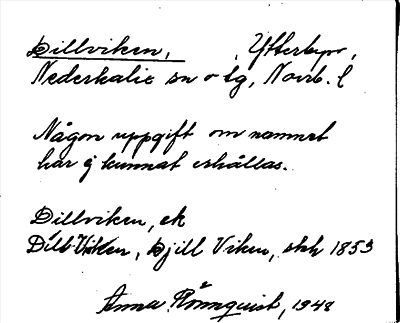 Dillviken, , Ytterbyn,
Nederkalix sn o tg, Norrb. l
Någon uppgift om namnet
har ej kunnat erhållas.
Dillviken, ek
Dill Viken, Djill Viken, skh 1853
Anna Rönnquist, 1948